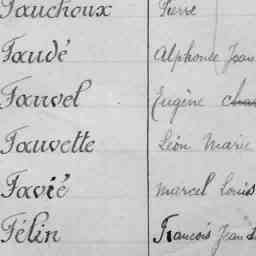 Fauchoux Pierre
Faudé Alphonse Jean
Fauvel Eugène
Fauvette Léon Marie
Favié Marcel Louis
Félin Francois Jean